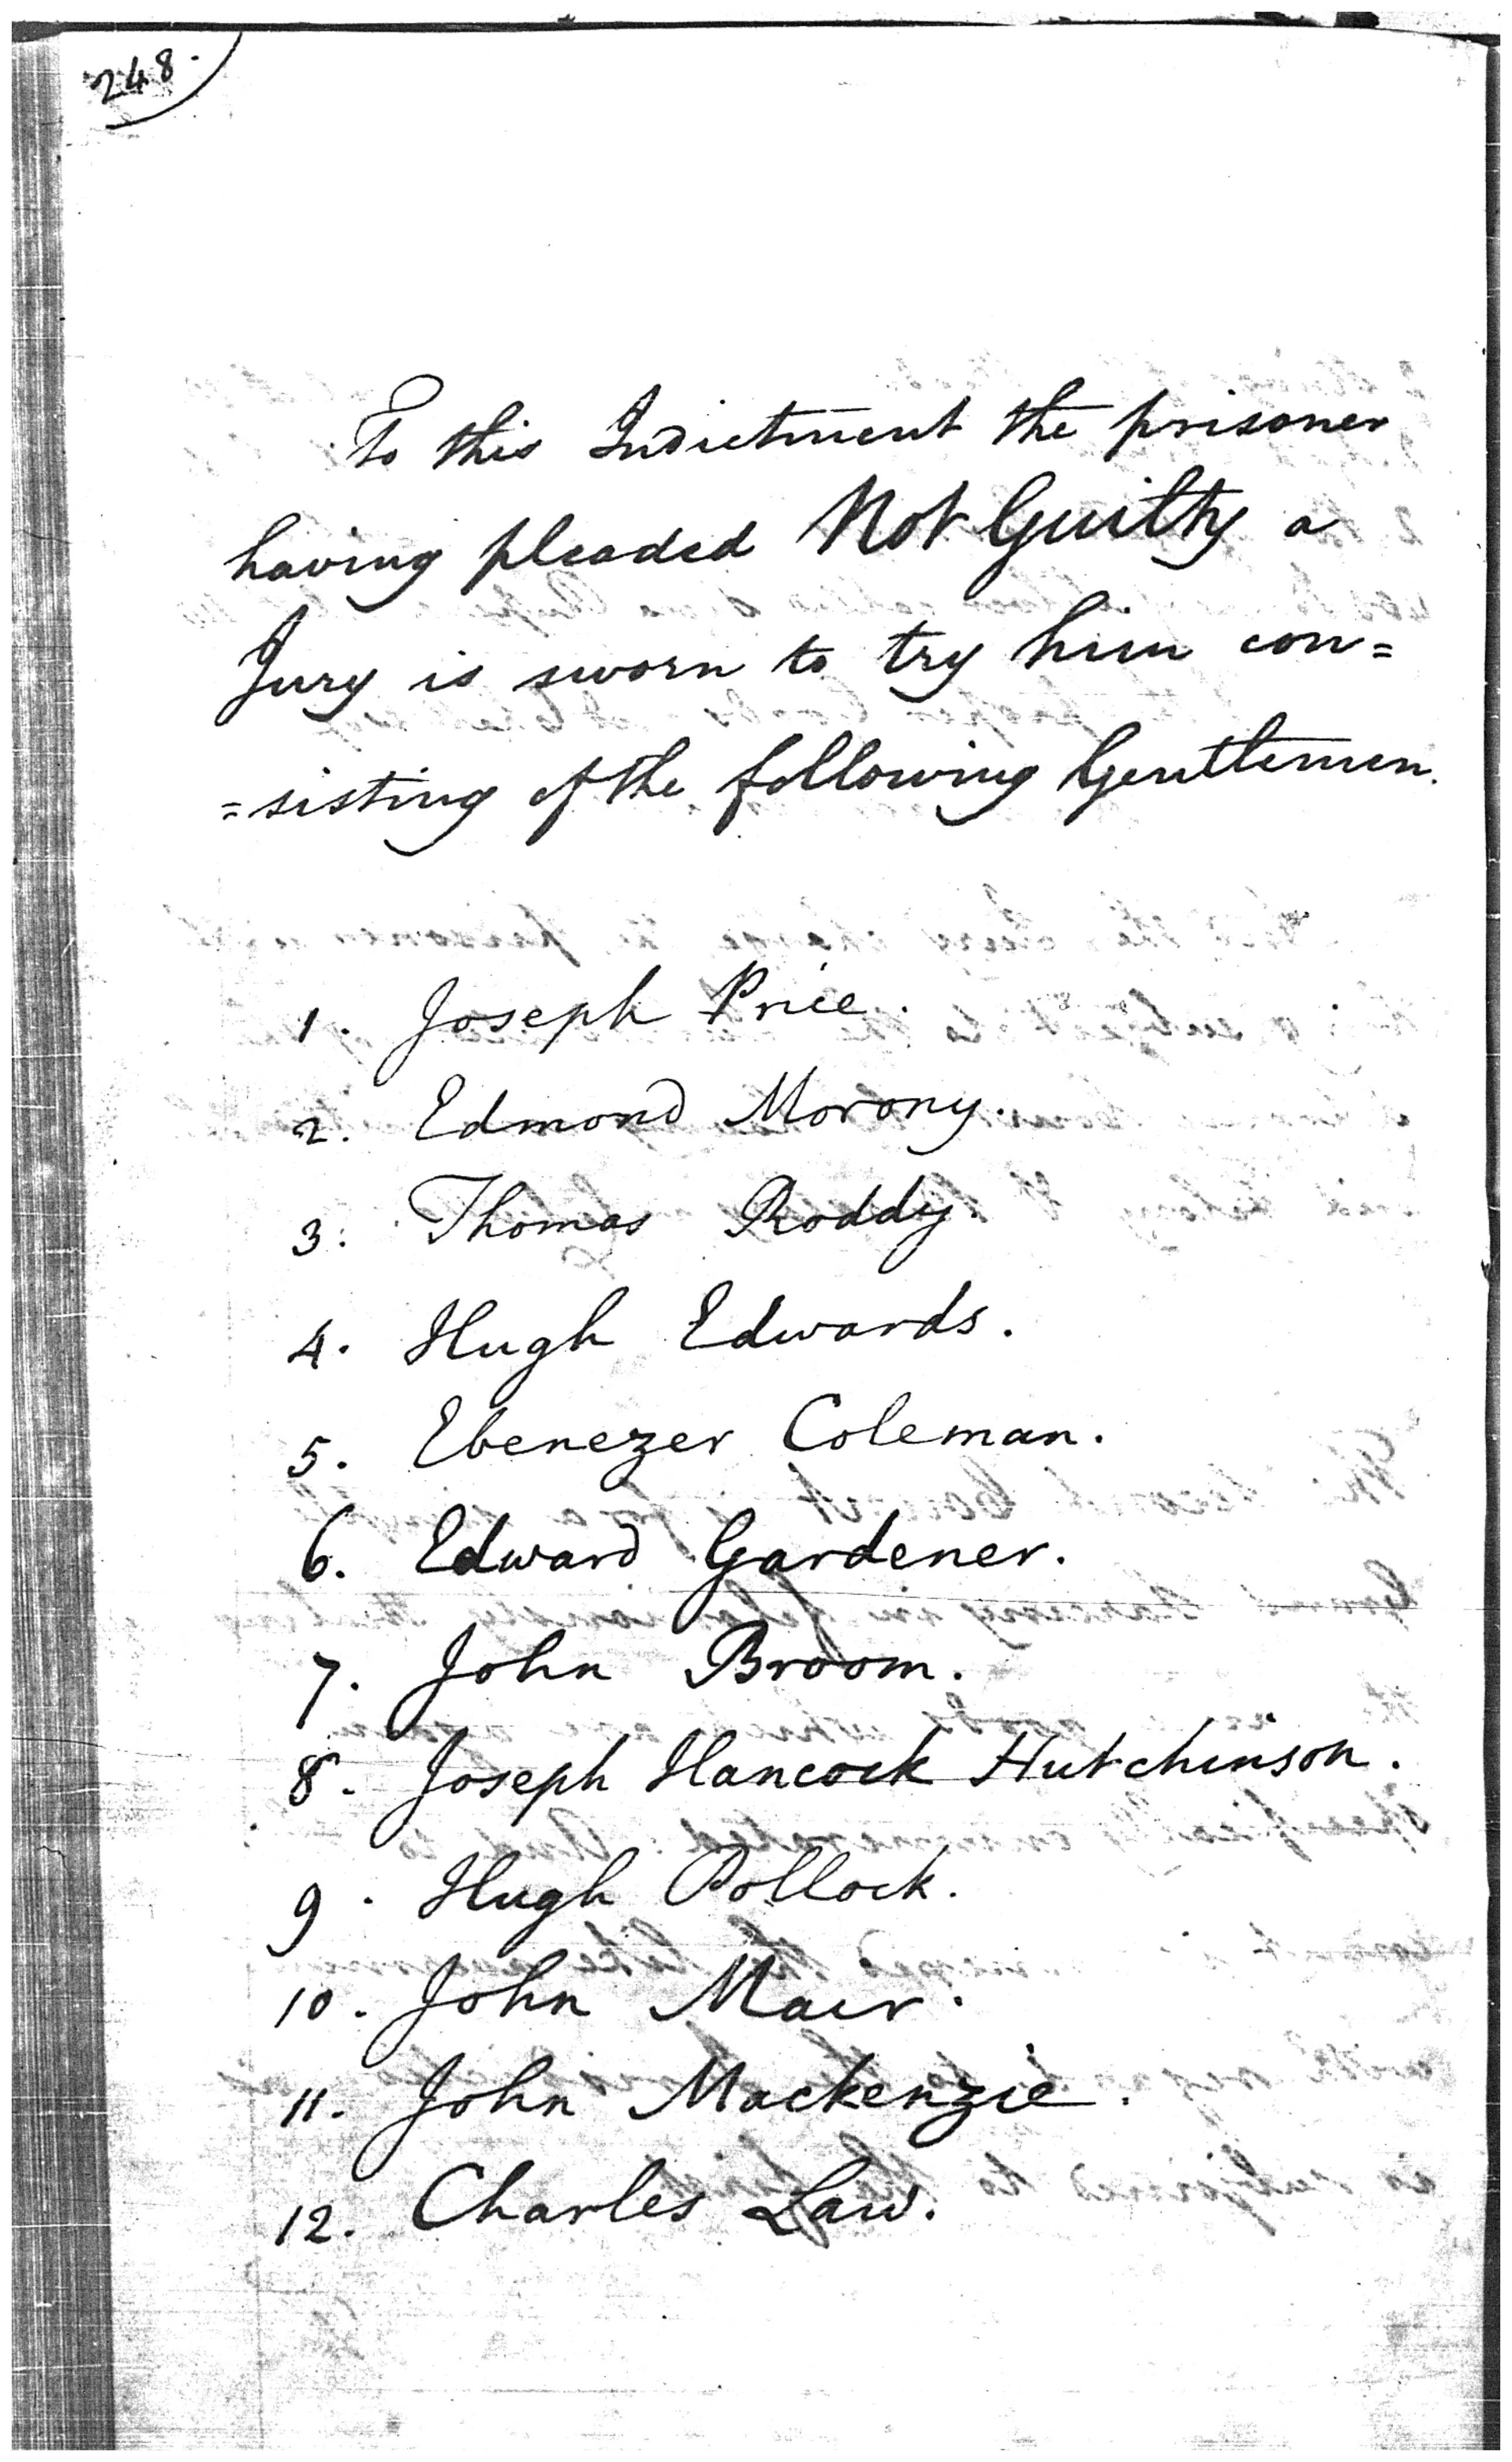 248.
To this Indictment the prisoner
having pleaded Not Guilty a
Jury is sworn to try him con=
=sisting of the following Gentlemen.
1. Joseph Price.
2. Edmond Morony.
3. Thomas Roddy.
4. Hugh Edwards.
5. Ebenezer Coleman.
6. Edward Gardener.
7. John Broom.
8. Joseph Hancock Hutchinson.
9. Hugh Pollock.
10. John Mair.
11. John Mackenzie.
12. Charles Law.